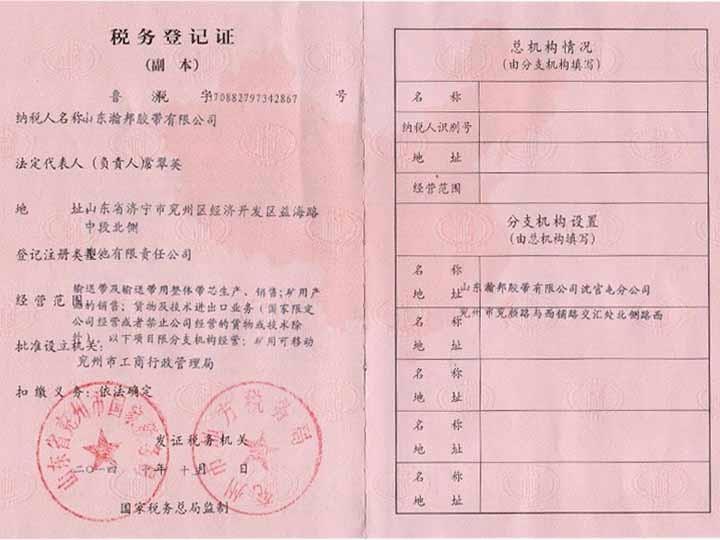 税务登记证
（副 本）
鲁 税 字 370882797342867 号
纳税人名称 山东瀚邦胶带有限公司
法定代表人（负责人）常翠英
地 址 山东省济宁市兖州区经济开发区益海路
中段北侧
登记注册类型 其他有限责任公司
输送带及输送带用整体带芯生产、销售；矿用产
经 营 范 围 品的销售；货物及技术进出口业务（国家限定
公司经营或者禁止公司经营的货物或技术除
外）。以下项目限分支机构经营：矿用可移动
批准设立机关：
兖州市工商行政管理局
扣 缴 义 务：依法确定
发 证 税 务 机 关
二〇一四 年 十 月 日
国家税务总局监制
山东省兖州市国家税务局
兖州市地方税务局
总机构情况
（由分支机构填写）
名 称
纳税人识别号
地 址
经营范围
分支机构设置
（由总机构填写）
名 称
地 址 山东瀚邦胶带有限公司沈官屯分公司
名 称 兖州市兖颜路与西铺路交汇处北侧路西
地 址
名 称
地 址
名 称
地 址
名 称
地 址